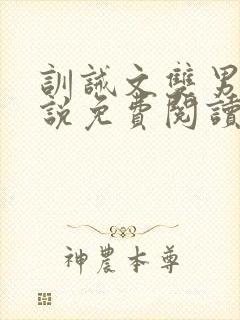 訓誡文雙男
說免費閱讀
神農本尊